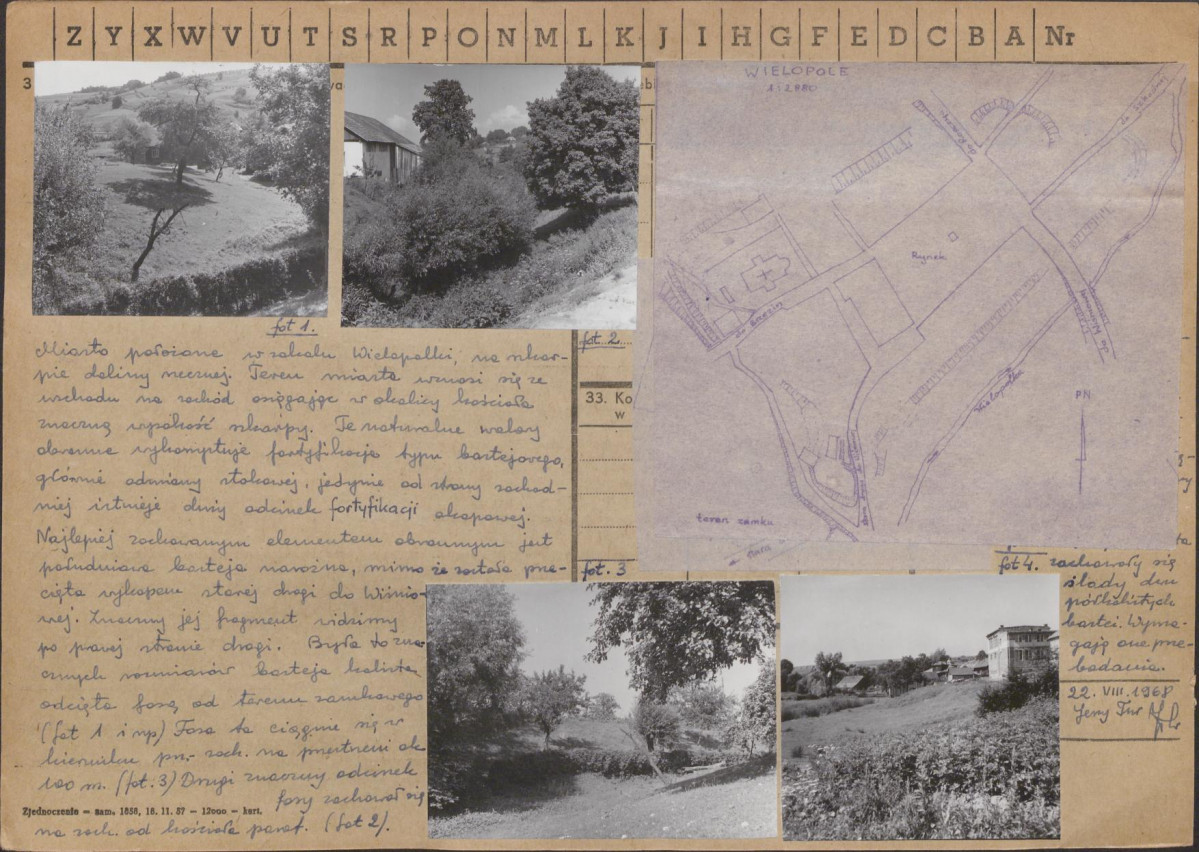 Z Y X W V U T S R P O N M L K J I H G F E D C B A Nr
3
WIELOPOLE
1:2880
Rynek
Wielopolka
PN
teren zamku
fot 1.
fot 2
33. Ko
w
fot. 3
Miasto położone w zakolu Wielopolki, na skar-
pie doliny rzecznej. Teren miasta wznosi się ze
wschodu na zachód osiągając w okolicy kościoła
znaczną wysokość skarpy. Te naturalne walory
obronne wykorzystuje fortyfikacja typu bastejowego,
głównie odmiany stokowej, jedynie od strony zachod-
niej istnieje duży odcinek fortyfikacji okopowej.
Najlepiej zachowanym elementem obronnym jest
południowa basteja narożna, mimo że została prze-
cięta wykopem starej drogi do Wiśnio-
wej. Znaczny jej fragment widzimy
po prawej stronie drogi. Była to zna-
cznych rozmiarów basteja kolista,
odcięta fosą od terenu zamkowego
(fot 1 i np) Fosa ta ciągnie się w
kierunku pn.- zach. na przestrzeni ok
100 m. (fot. 3) Drugi znaczny odcinek
fosy zachował się
na zach. od kościoła paraf. (fot 2).
Zjednoczenie — zam. 1858, 18. 11. 67 — 12000 — kart.
fot 4. zachowały się
ślady dwu
półkolistych
bastei. Wyma-
gają one prze-
badania.
22. VIII. 1968
Jerzy Tur